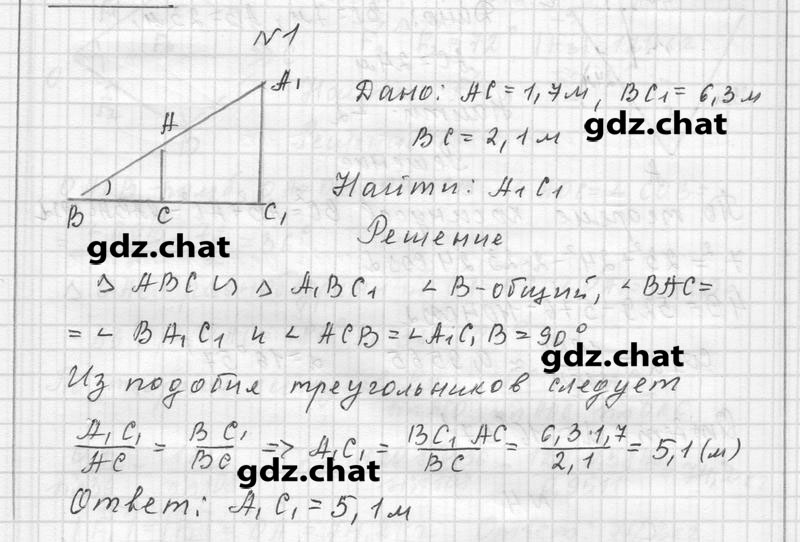 N1
A₁
A
B C C₁
Дано: AC = 1,7м, BC₁ = 6,3м
BC = 2,1м
gdz.chat
Найти: A₁C₁
gdz.chat
Решение
△ ABC ∽ △ A₁BC₁ ∠B-общий, ∠BAC=
= ∠ BA₁C₁ и ∠ ACB = ∠A₁C₁B = 90°
gdz.chat
Из подобия треугольников следует
A₁C₁/AC = BC₁/BC => A₁C₁ = BC₁ AC/BC = 6,3·1,7/2,1 = 5,1(м)
gdz.chat
Ответ: A₁C₁ = 5,1м